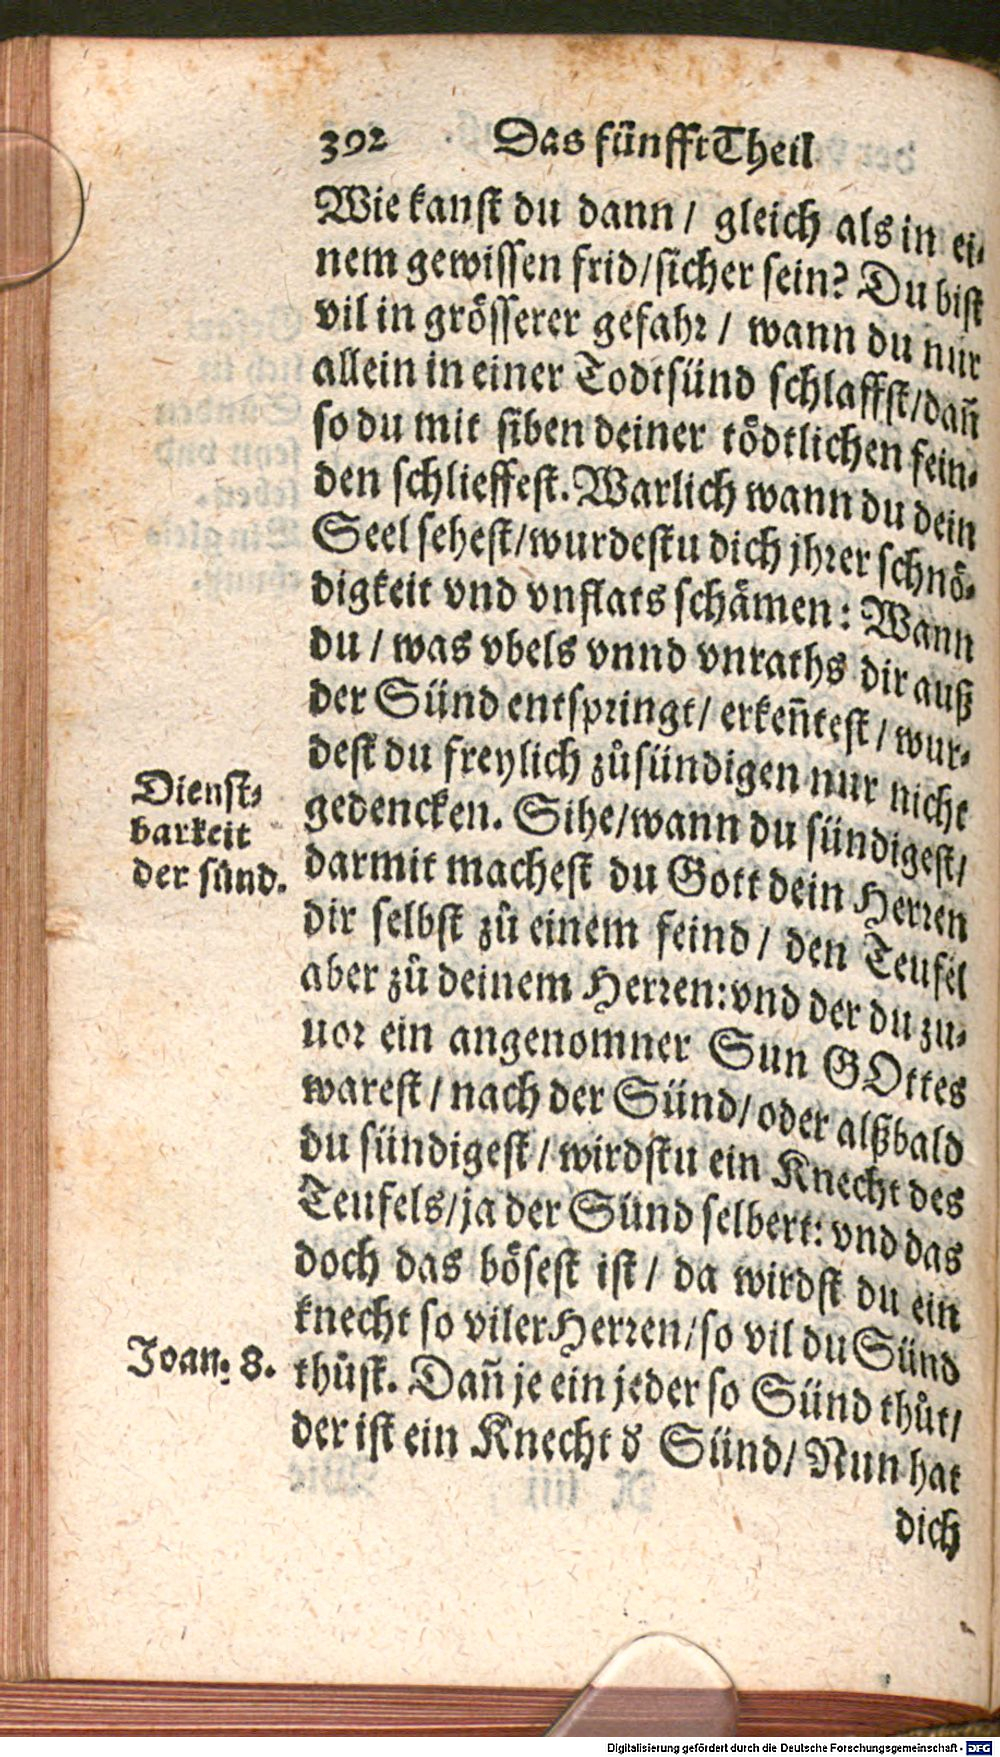 392 Das fünfft Theil
Wie kanst du dann / gleich als in ei-
nem gewissen frid/sicher sein? Du bist
vil in grösserer gefahr / wann du nur
allein in einer Todtsünd schlaffst/dañ
so du mit siben deiner tödtlichen fein-
den schlieffest. Warlich wann du dein
Seel sehest/wurdestu dich jhrer schnö-
digkeit vnd vnflats schämen: Wann
du / was vbels vnnd vnraths dir auß
der Sünd entspringt/ erkeñtest / wur-
dest du freylich zůsündigen nur nicht
gedencken. Sihe/wann du sündigest/
Dienst-
barkeit
der sünd.
darmit machest du Gott dein Herren
dir selbst zů einem feind / den Teufel
aber zů deinem Herren: vnd der du zu-
uor ein angenomner Sun GOttes
warest / nach der Sünd/ oder alßbald
du sündigest / wirdstu ein Knecht des
Teufels/ja der Sünd selbert: vnd das
doch das bösest ist / da wirdst du ein
knecht so viler Herren/so vil du Sünd
Joan. 8.
thůst. Dañ je ein jeder so Sünd thůt/
der ist ein Knecht d̕ Sünd/ Nun hat
dich
Digitalisierung gefördert durch die Deutsche Forschungsgemeinschaft - DFG